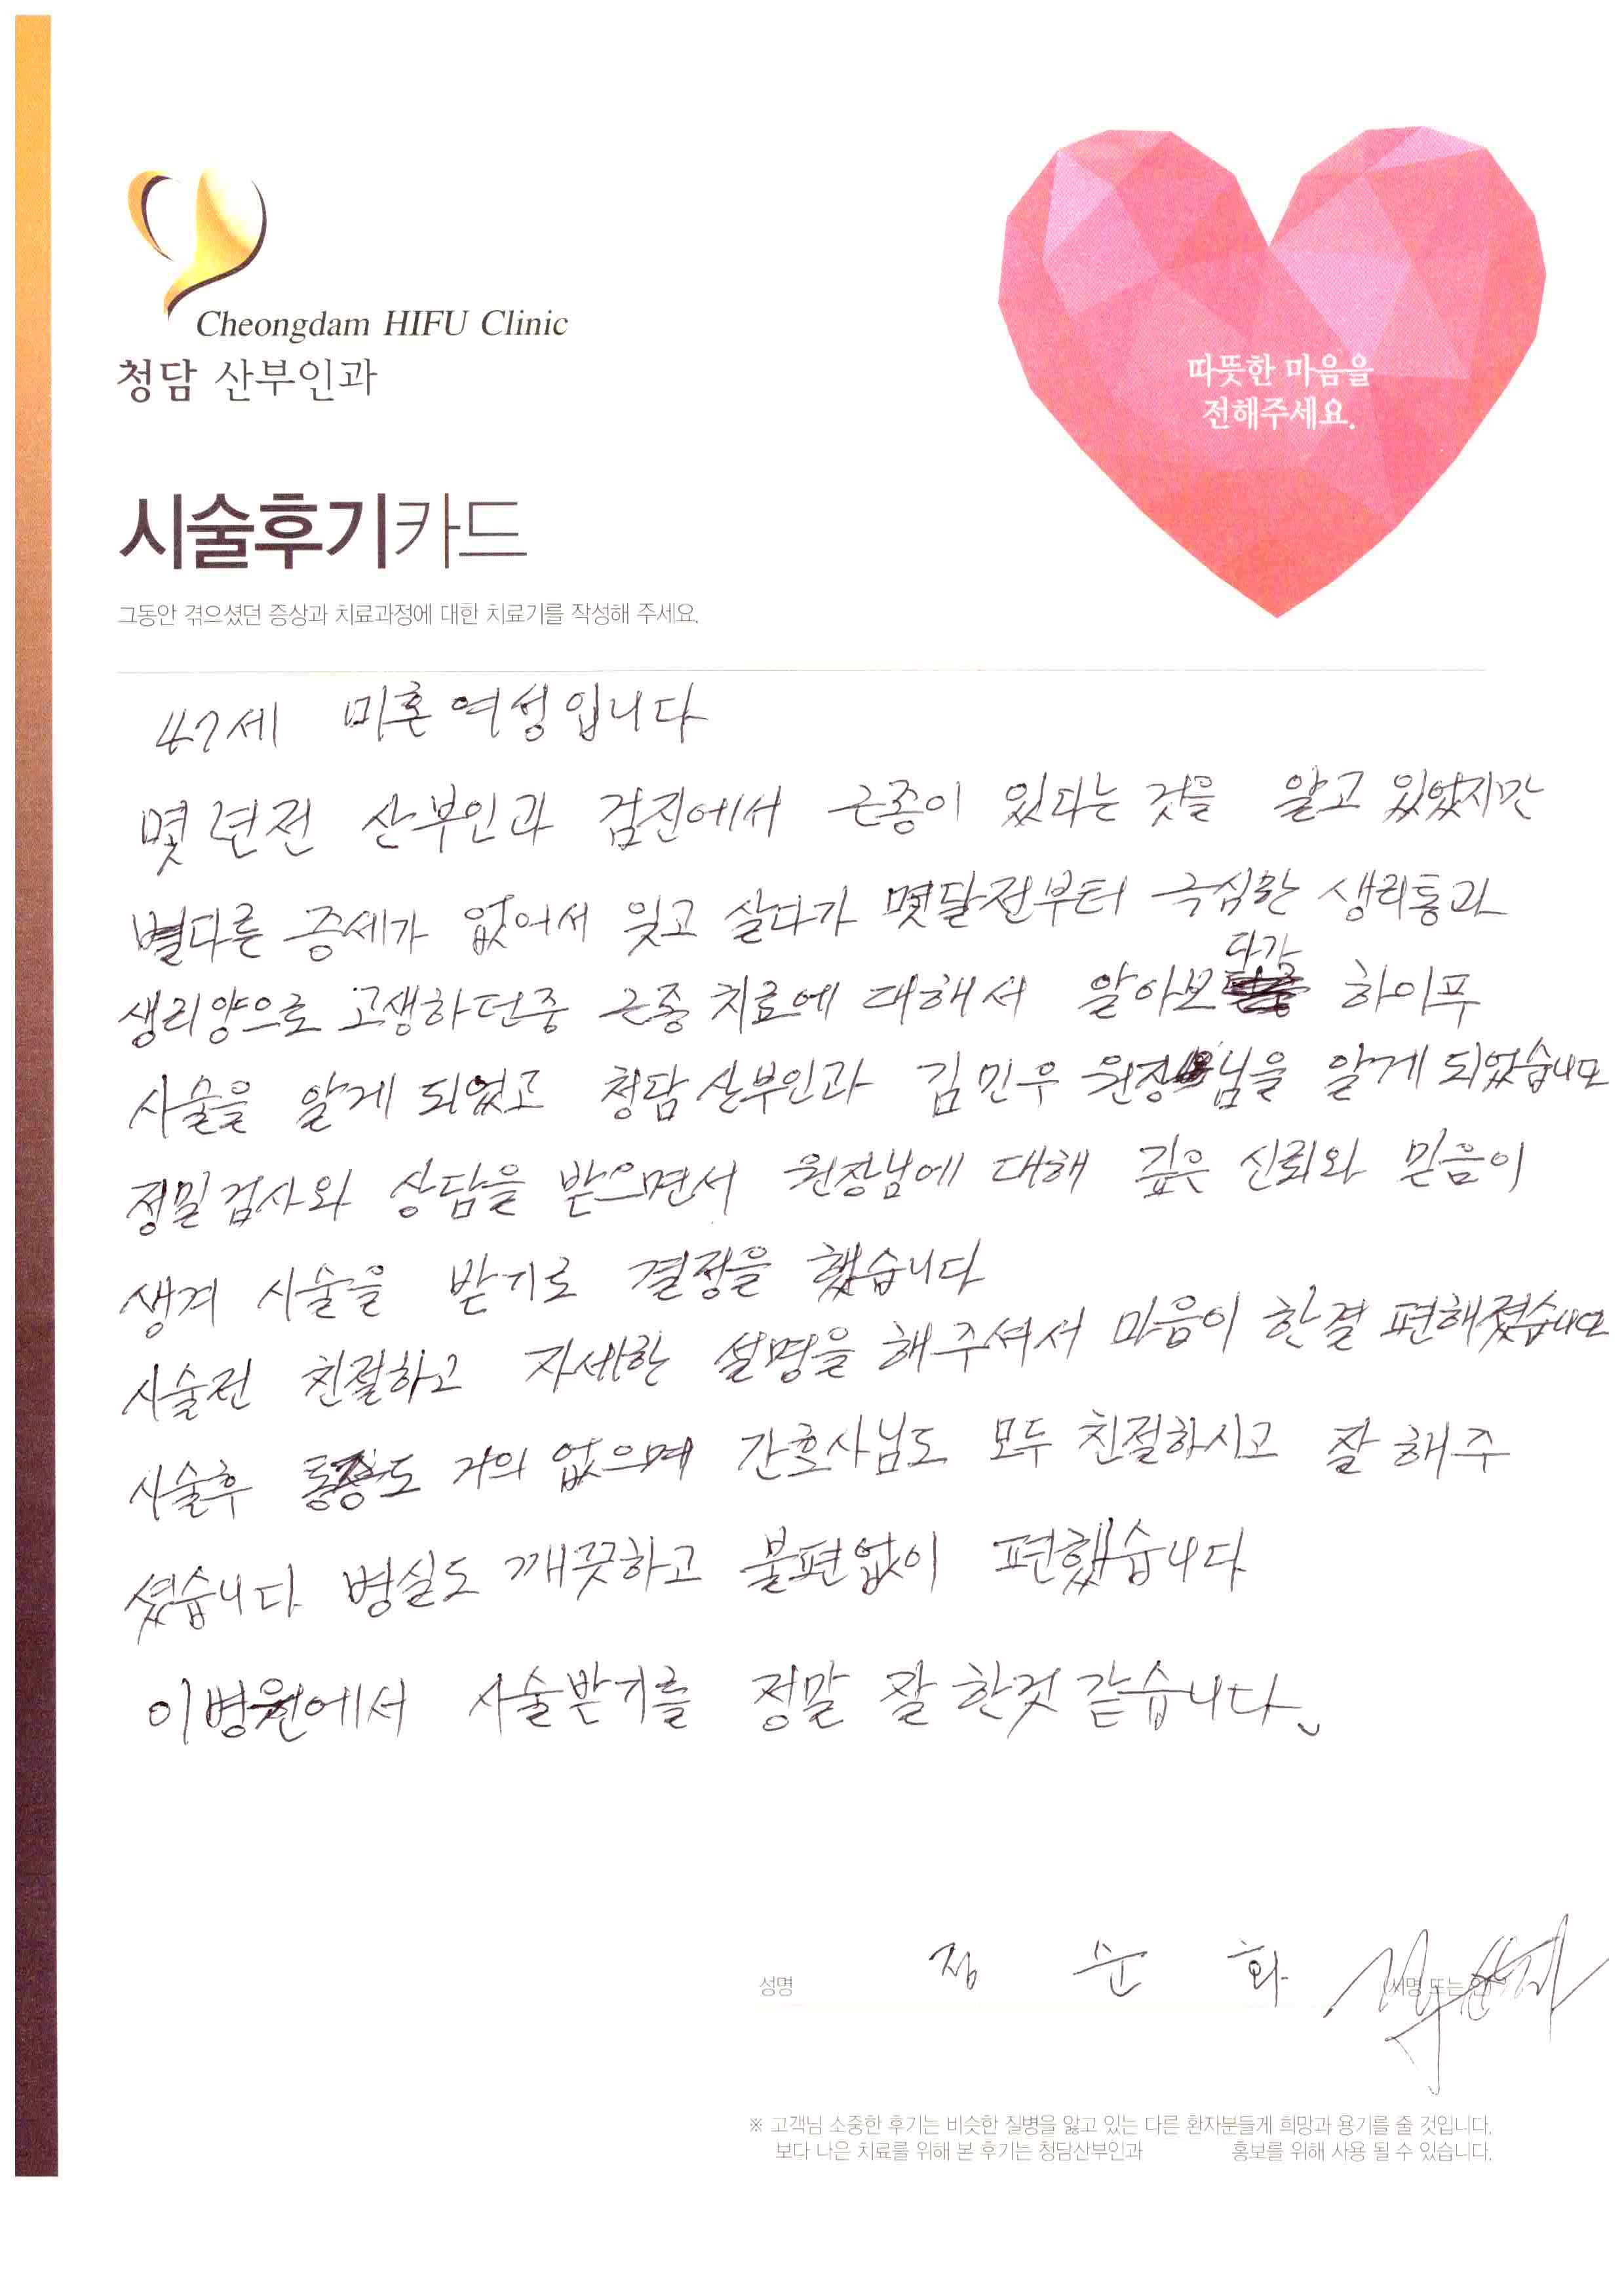 Cheongdam HIFU Clinic
청담 산부인과
따뜻한 마음을
전해주세요.
시술후기카드
그동안 겪으셨던 증상과 치료과정에 대한 치료기를 작성해 주세요.
47세 미혼여성입니다
몇년전 산부인과 검진에서 근종이 있다는 것을 알고 있었지만
별다른 증세가 없어서 잊고 살다가 몇달전부터 극심한 생리통과
생리양으로 고생하던중 근종 치료에 대해서 알아보다가 하이푸
시술을 알게 되었고 청담산부인과 김민우 원장님을 알게 되었습니다
정밀검사와 상담을 받으면서 원장님에 대해 깊은 신뢰와 믿음이
생겨 시술을 받기로 결정을 했습니다
시술전 친절하고 자세한 설명을 해주셔서 마음이 한결 편해졌습니다
시술후 통증도 거의 없으며 간호사님도 모두 친절하시고 잘 해주
셨습니다 병실도 깨끗하고 불편없이 편했습니다
이병원에서 시술받기를 정말 잘 한것 같습니다.
성명 정 순 화 (서명 또는 인)
※ 고객님 소중한 후기는 비슷한 질병을 앓고 있는 다른 환자분들게 희망과 용기를 줄 것입니다.
보다 나은 치료를 위해 본 후기는 청담산부인과 홍보를 위해 사용 될 수 있습니다.